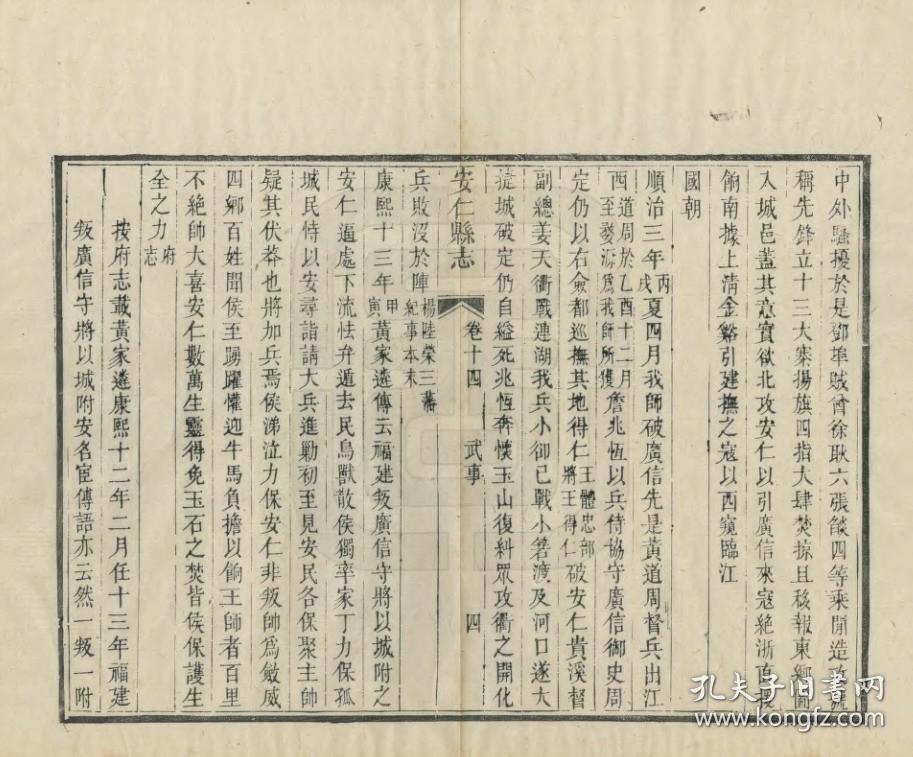 中外騷擾於是鄧埠賊曾徐耿六張燄四等乘閒造改號
稱先鋒立十三大寨揚旗四指大肆焚掠且移報東鄉圖
入城邑蓋其意實欲北攻安仁以引廣信來寇絕浙直援
餉南據上清金谿引建撫之寇以西窺臨江
國朝
順治三年丙戌夏四月我師破廣信先是黃道周督兵出江
西道周於乙酉十二月至婺源爲我師所獲詹兆恆以兵侍協守廣信御史周
定仍以右僉都巡撫其地得仁王體忠部將王得仁破安仁貴溪督
副總姜天衢戰連湖我兵小御已戰小箬渡及河口遂大
捷城破定仍自縊死兆恆奔懷玉山復糾眾攻衢之開化
安仁縣志 卷十四 武事 四
兵敗沒於陣楊陸榮三藩紀事本末
康熙十三年甲寅黃家遴傳云福建叛廣信守將以城附之
安仁逼處下流怯弁遁去民鳥獸散侯獨率家丁力保孤
城民恃以安尋詣請大兵進勦初至見安民各保聚主帥
疑其伏莽也將加兵焉侯涕泣力保安仁非叛帥爲斂威
四鄉百姓聞侯至踴躍懽迎牛馬負擔以餉王師者百里
不絕師大喜安仁數萬生靈得免玉石之焚皆侯保護生
全之力府志
按府志載黃家遴康熙十二年二月任十三年福建
叛廣信守將以城附安名宦傳語亦云然一叛一附
孔夫子旧书网
www.kongfz.com